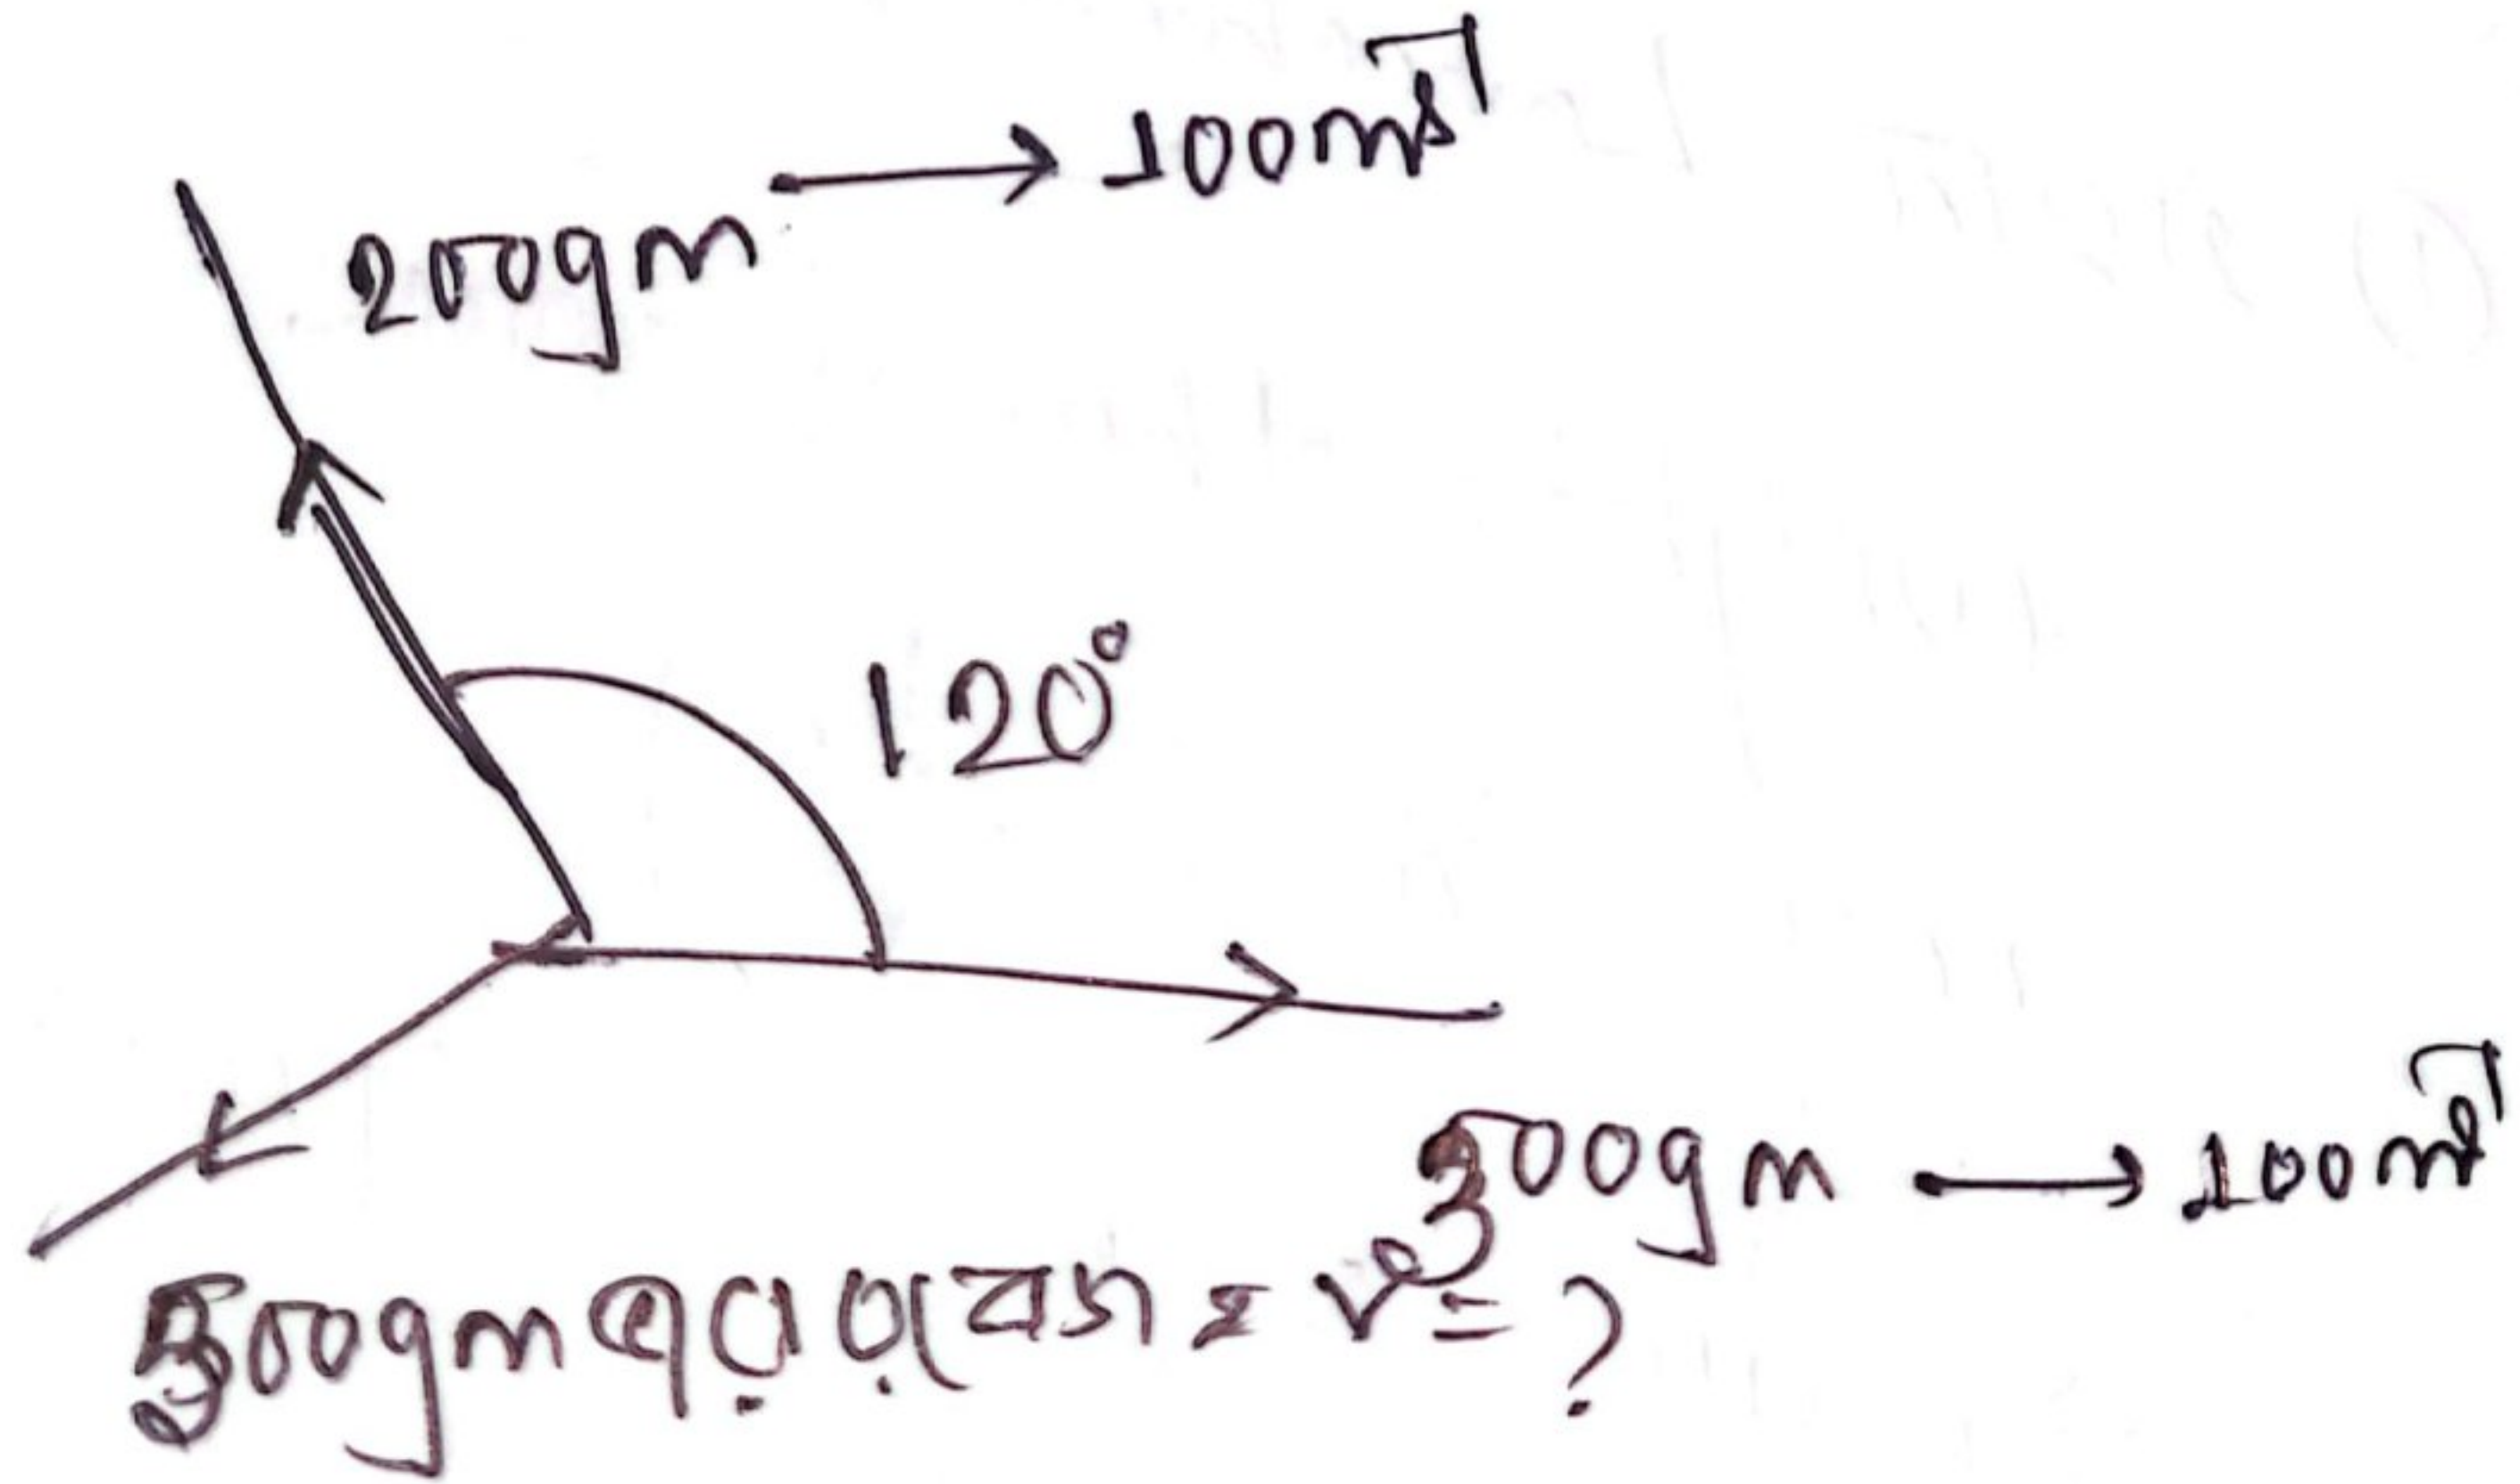 200gm → 100ms⁻¹
120°
300gm → 100ms⁻¹
500gm = v = ?